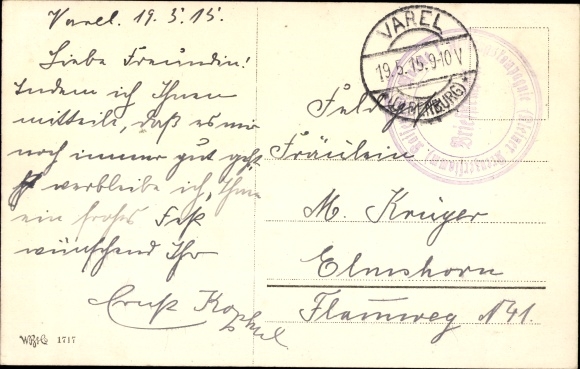 Varel. 19.5.15.
Liebe Freundin!
Indem ich Ihnen
mitteile, daß es mir
noch immer gut geht,
verbleibe ich, Ihnen
ein frohes Fest
wünschend Ihr
Ernst
W.R.B.&Co. 1717
VAREL
19.5.15.9-10V
(OLDENBURG)
Feldp
Fräulein
M. Krüger
Elmshorn
Flamweg N41.